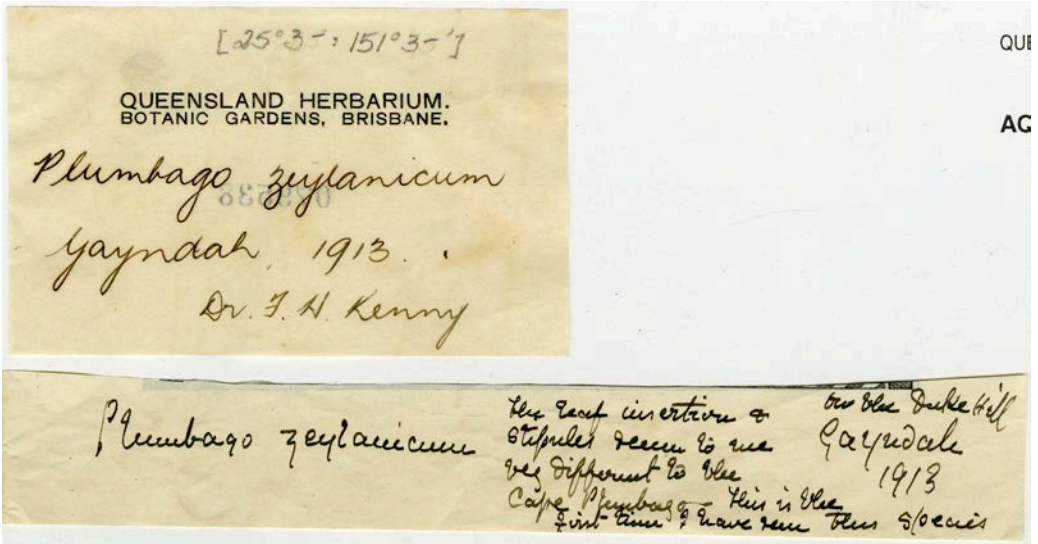 [25°3-' : 151°3-']
QUEENSLAND HERBARIUM.
BOTANIC GARDENS, BRISBANE.
Plumbago zeylanicum
Gayndah, 1913.
Dr. F. H. Kenny
QUE
AQ
Plumbago zeylanicum
The leaf insertion &
stipules seem to me
very different to the
Cape Plumbago - This is the
first time I have seen this species
on the Duke Hill
Gayndah
1913